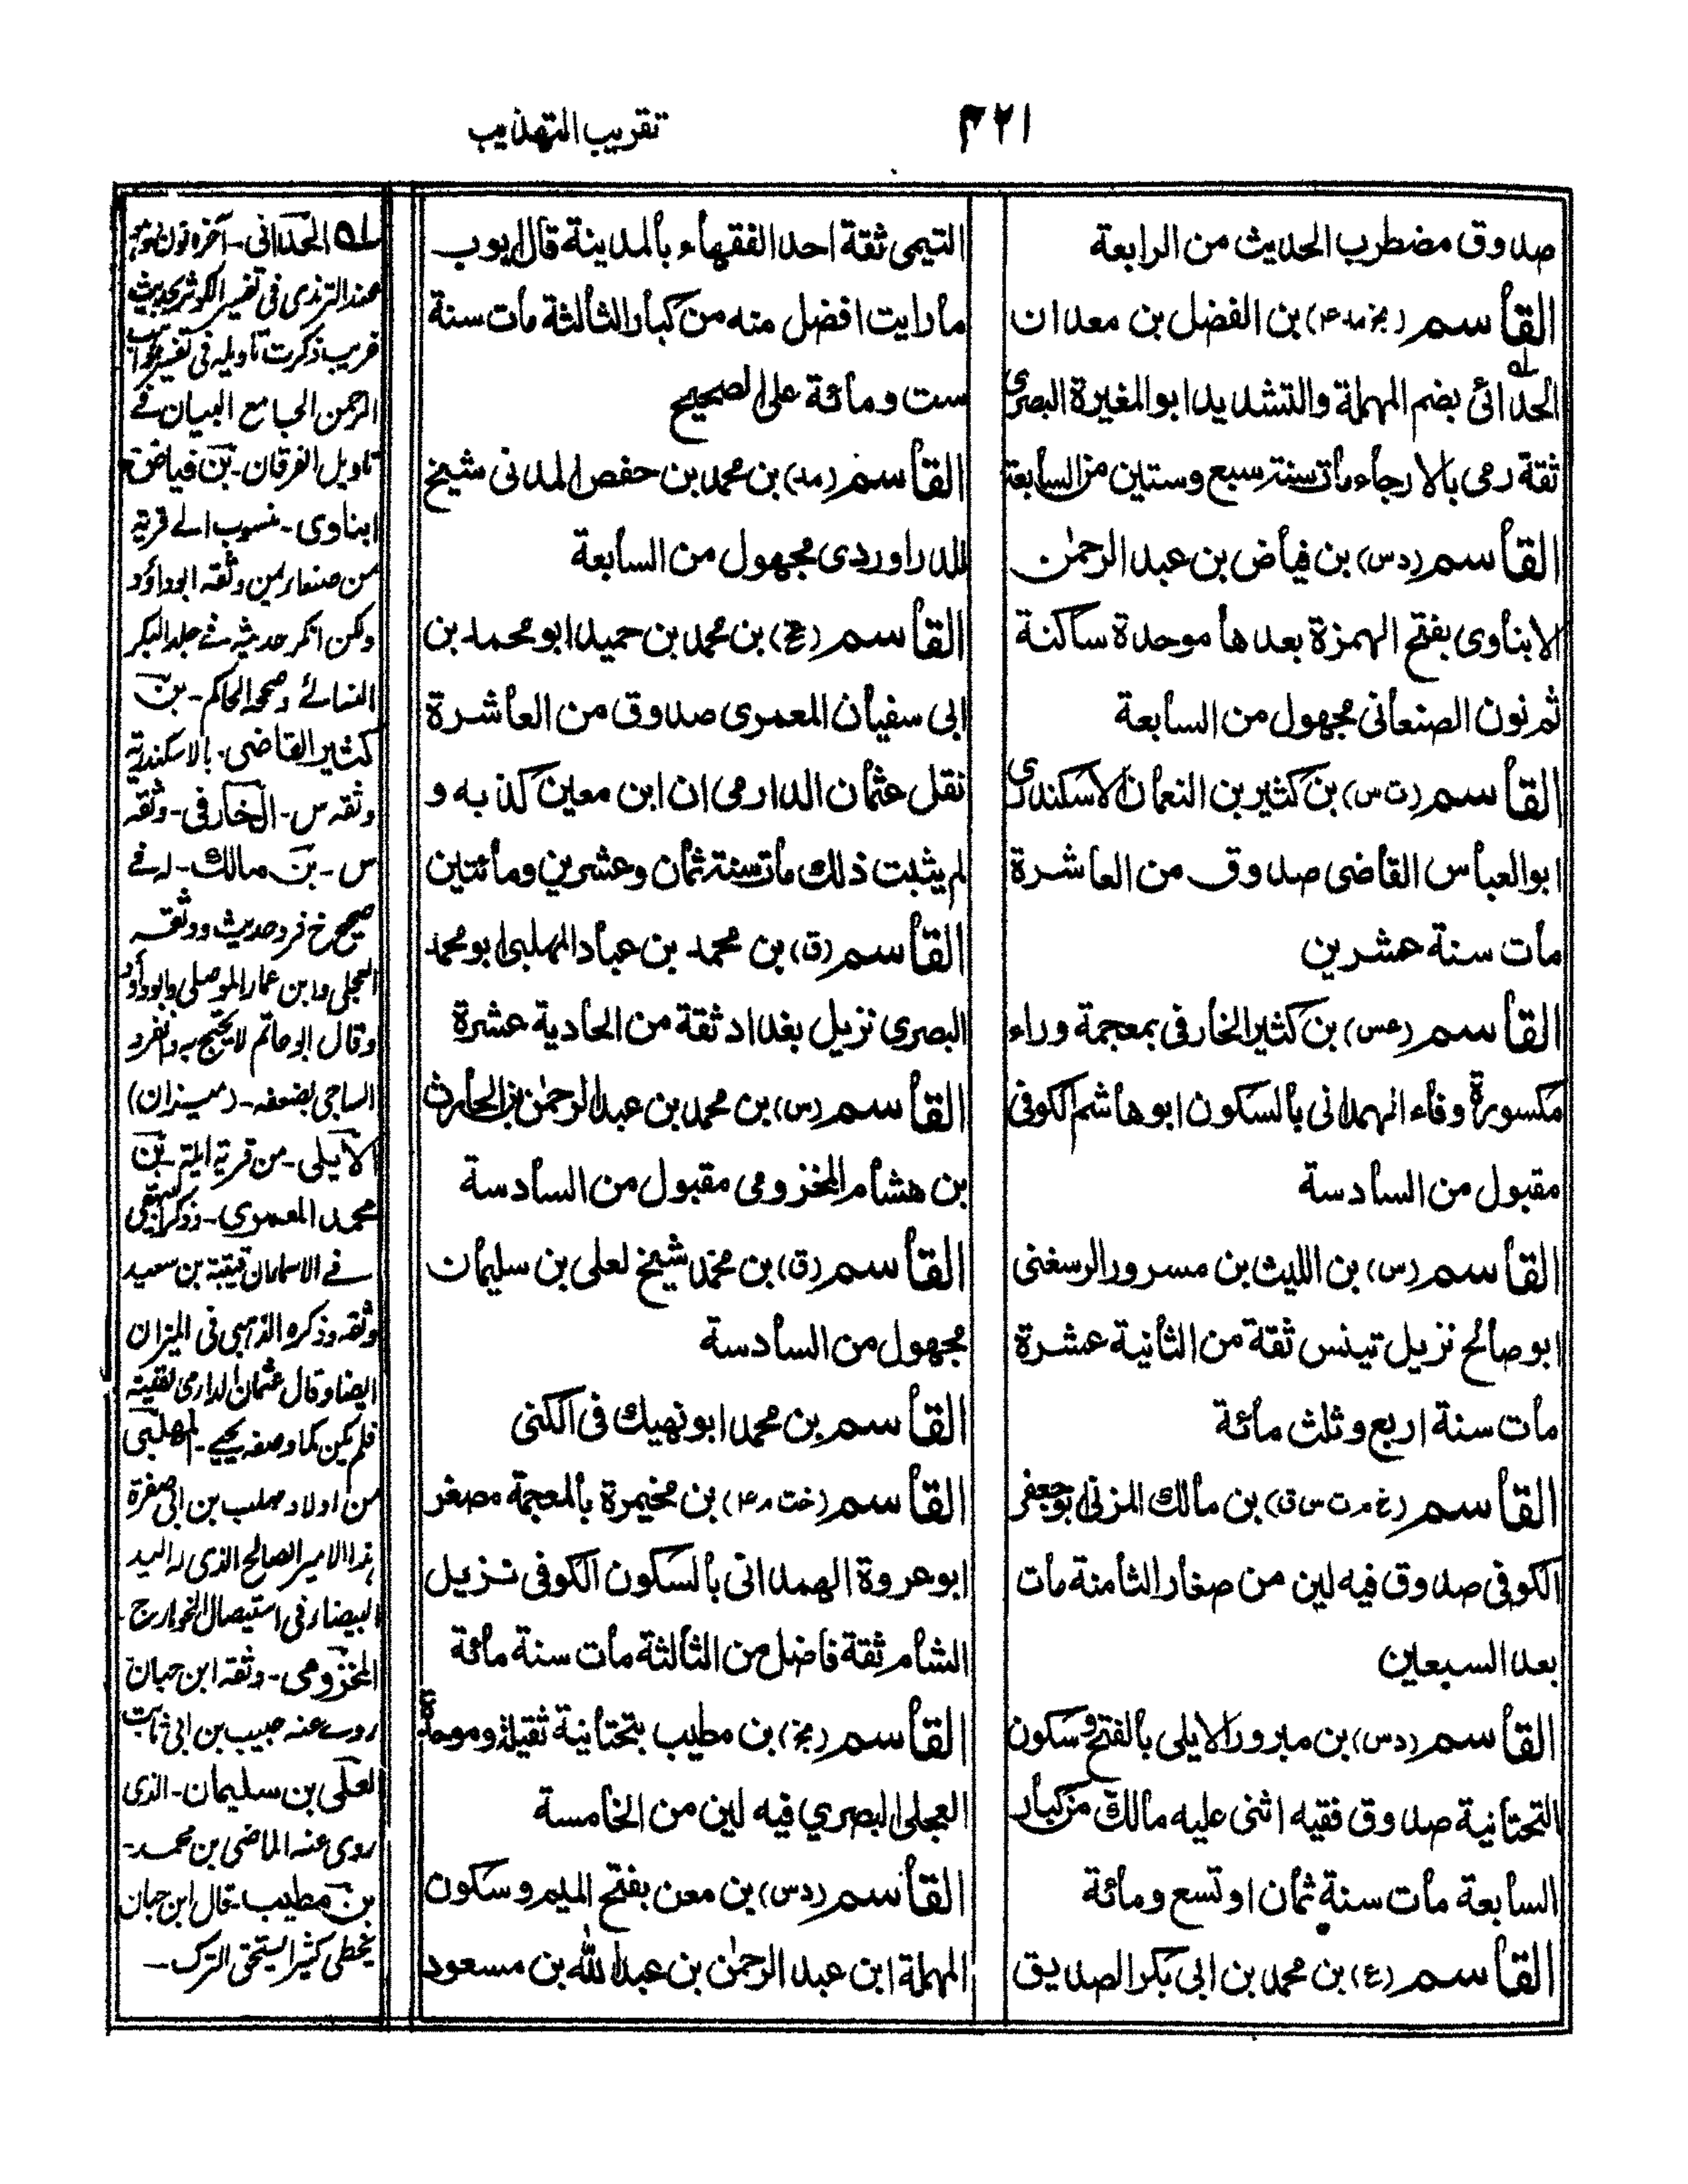 ٤٢١
تقريب التهذيب
صدوق مضطرب الحديث من الرابعة
القاسم (بخ مد ٤) بن الفضل بن معدان
الحدائى بضم المهملة والتشديد ابو المغيرة البصرى
ثقة رمى بالارجاء مات سنة سبع وستين من السابعة
القاسم (د س) بن فياض بن عبد الرحمٰن
الابناوى بفتح الهمزة بعدها موحدة ساكنة
ثم نون الصنعانى مجهول من السابعة
القاسم (ت س) بن كثير بن النعمان الاسكندرى
ابو العباس القاضى صدوق من العاشرة
مات سنة عشرين
القاسم (عس) بن كثير الخارفى بمعجمة وراء
مكسورة وفاء الهمدانى بالسكون ابو هاشم الكوفى
مقبول من السادسة
القاسم (س) بن الليث بن مسرور الرسغنى
ابو صالح نزيل تينس ثقة من الثانية عشرة
مات سنة اربع وثلث مائة
القاسم (خ م ت س ق) بن مالك المزنى ابو جعفر
الكوفى صدوق فيه لين من صغار الثامنة مات
بعد السبعين
القاسم (د س) بن مبرور الايلى بالفتح وسكون
التحتانية صدوق فقيه اثنى عليه مالك من كبار
السابعة مات سنة ثمان او تسع ومائة
القاسم (ع) بن محمد بن ابى بكر الصديق
التيمى ثقة احد الفقهاء بالمدينة قال ايوب
ما رايت افضل منه من كبار الثالثة مات سنة
ست ومائة على الصحيح
القاسم (مد) بن محمد بن حفص المدنى شيخ
للدراوردى مجهول من السابعة
القاسم (عخ) بن محمد بن حميد ابو محمد بن
ابى سفيان المعمرى صدوق من العاشرة
نقل عثمان الدارمى ان ابن معين كذبه و
لم يثبت ذلك مات سنة ثمان وعشرين ومائتين
القاسم (ق) بن محمد بن عباد المهلبى ابو محمد
البصرى نزيل بغداد ثقة من الحادية عشرة
القاسم (س) بن محمد بن عبد الرحمٰن بن الحارث
بن هشام المخزومى مقبول من السادسة
القاسم (ق) بن محمد شيخ لعلى بن سليمان
مجهول من السادسة
القاسم بن محمد ابو نهيك فى الكنى
القاسم (خت م ٤) بن مخيمرة بالمعجمة مصغر
ابو عروة الهمدانى بالسكون الكوفى نزيل
الشام ثقة فاضل من الثالثة مات سنة مائة
القاسم (بخ) بن مطيب بتحتانية ثقيلة وموحدة
العجلى البصري فيه لين من الخامسة
القاسم (د س) بن معن بفتح الميم وسكون
المهملة ابن عبد الرحمٰن بن عبد الله بن مسعود
له الحدانى - آخره نون
عند الترمذى فى تفسير الكوثر بحديث
غريب ذكرت تاويله فى تفسير مواهب
الرحمن الجامع البيان فے
تاويل الفرقان - بن فياض
ابناوى - منسوب الے قرية
من صنعاء يمن وثقه ابو داؤد
ولكن انكر حديثه فے جلد البكر
النسائے وصححه الحاكم - بن
كثير القاضى - بالاسكندرية
وثقه س - الخارفى - وثقه
س - بن مالك - له فے
صحيح خ فرد حديث ووثقه
العجلى وابن عمار الموصلى وابو داؤد
وقال ابو حاتم لا يحتج به وانفرد
الساجى بضعفه - (ميزان)
الايلى - من قرية ايلة - بن
محمد المعمرى - وذكر البيهقى
فے الاسماء ان قتيبة بن سعيد
وثقه وذكره الذهبى فى الميزان
ايضا وقال عثمان الدارمى لقيته
فلم يكن كما وصفه يحيے - المهلبى
من اولاد مهلب بن ابى صفرة
هذا الامير الصالح الذى له اليد
البيضاء فى استيصال الخوارج -
المخزومى - وثقه ابن حبان
روے عنه حبيب بن ابى ثابت
لعلى بن سليمان - الذى
روى عنه الماضى بن محمد -
بن مطيب - قال ابن حبان
يخطى كثيرا يستحق الترك -